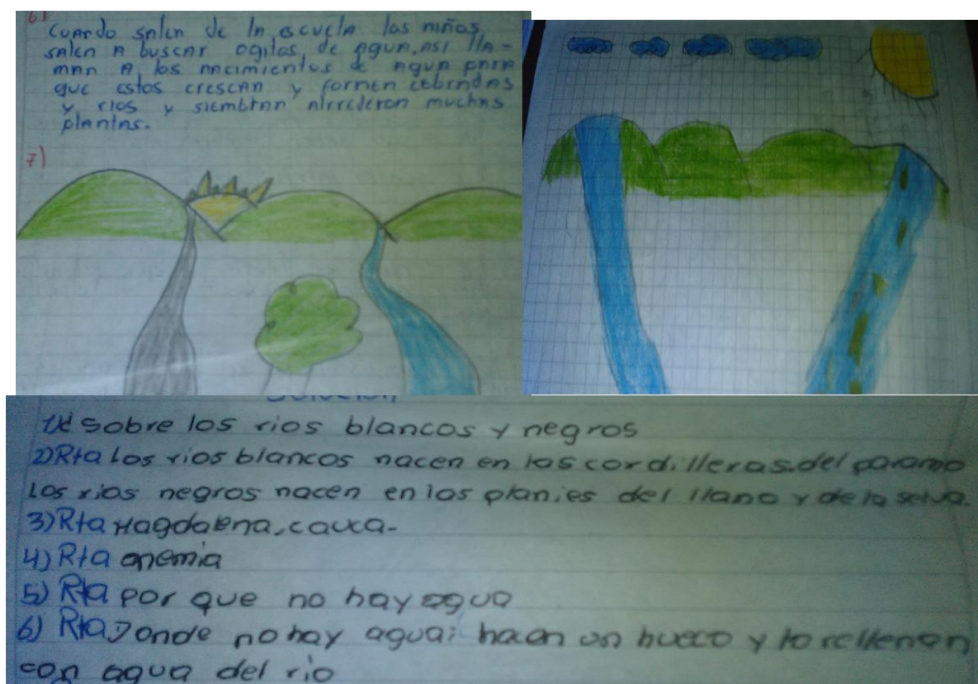 6)
Cuando salen de la escuela los niños
salen a buscar ogitos de agua, asi lla-
man a los nacimientos de agua para
que estos crescan y formen cebradas
y rios y siembran alrrededor muchas
plantas.
7)
Solución
1) sobre los rios blancos y negros
2) Rta Los rios blancos nacen en las cordilleras del paramo
Los rios negros nacen en los planies del llano y de la selva.
3) Rta Magdalena, cauca.
4) Rta anemia
5) Rta por que no hay agua
6) Rta Donde no hay agua; hacen un hueco y lo rellenan
con agua del rio